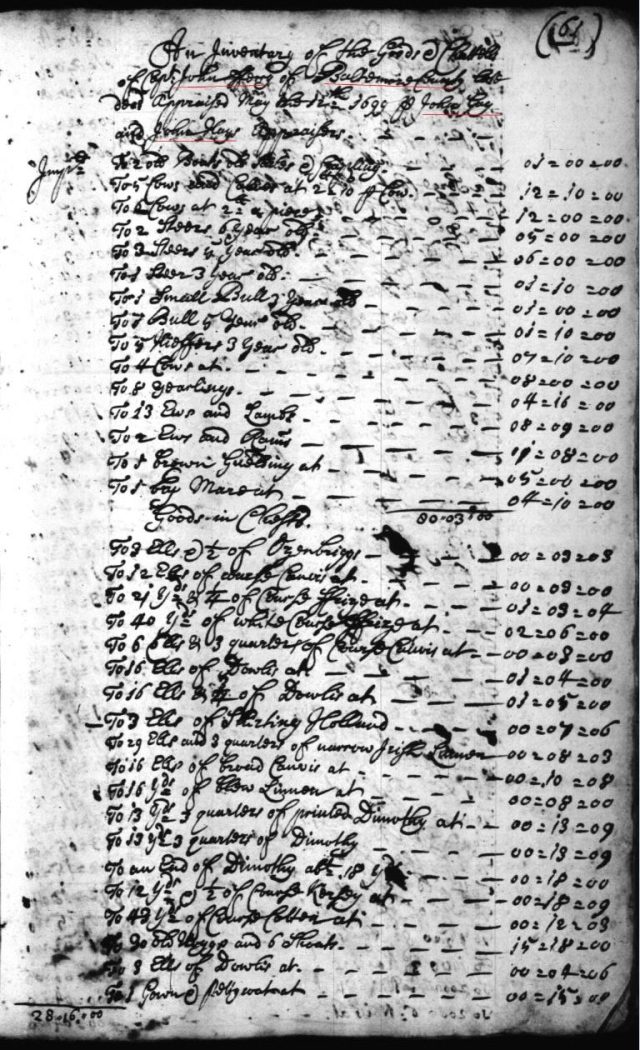 (161)
An Inventary of the Goods & Chattells
of Capt John Ferry of Baltemore County late
decd Appraised May the 12th 1699 p John Gay
and John Hays Appraisers
Imprs To 2 old Boats 01=00=00
To 5 Cows and Calves at 2 & 10 p Cow 12=10=00
To 6 Cows at 2 a piece 12=00=00
To 2 Steers 6 year old 05=00=00
To 3 Steers 4 year old 06=00=00
To 1 Steer 3 year old 01=10=00
To 1 Small Bull 3 Years old 01=00=00
To 1 Bull 5 Year old 01=10=00
To 5 Heffers 3 Year old 07=10=00
To 4 Cows at 08=00=00
To 8 yearlings 04=16=00
To 13 Ews and Lambs 08=09=00
To 2 Ews and Rams 01=08=00
To 1 brown Guelding at 05=00=00
To 1 bay Mare at 04=10=00
Goods in Chests 80=03=00
To 3 Ells & ½ of Ozenbriggs 00=03=03
To 12 Ells of course Canvis at 00=08=00
To 21 Yds & ¼ of Course ffrize at 01=03=04
To 40 Yds of white Course ffrize at 02=06=00
To 6 Ells & 3 quarters of Course Canvis at 00=08=00
To 16 Ells of Dowlis at 01=04=00
To 16 Ells & ¼ of Dowlis at 01=05=00
To 3 Ells of Shirting Holland 00=07=06
To 29 Ells and 3 quarters of narrow Irish Linnen 00=08=03
To 16 Ells of broad Canvis at 00=10=08
To 16 Yds of blew Linnen at 00=08=00
To 13 Yds 3 quarters of printed Dimothy at 00=13=09
To 13 Yds 3 quarters of Dimothy 00=13=09
To an End of Dimothy abt 18 Yds 00=18=00
To 12 Yds & ½ of Course Kersey at 00=18=09
To 49 Yds of Course Cotten at 00=12=03
To 30 old Hoggs and 6 Shoats 15=18=00
To 3 Ells of Dowlis at 00=04=06
To 1 Gown & petycoat at 00=15=00
28=16=00